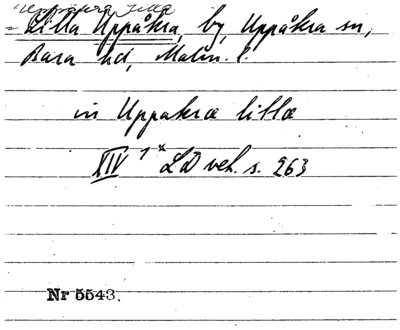 Uppåkra Lilla
= Lilla Uppåkra, by, Uppåkra sn,
Bara hd, Malm. l.
in Uppakræ litlæ
XIV 1 * LD vet. s. 263
Nr 5543.